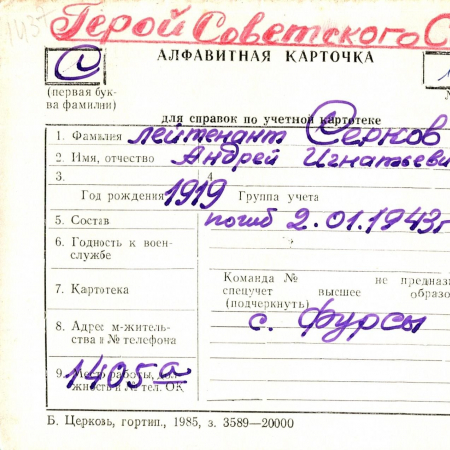 Герой Советского С
АЛФАВИТНАЯ КАРТОЧКА
С
(первая бук-
ва фамилии)
для справок по учетной картотеке
1. Фамилия лейтенант Серков
2. Имя, отчество Андрей Игнатьеви
3.
4
Год рождения 1919 Группа учета
5. Состав погиб 2.01.1943г
6. Годность к воен-
службе
Команда № не предназ
7. Картотека спецучет высшее образо
(подчеркнуть)
8. Адрес м-житель-
ства и № телефона
с. Фурсы
9. Место работы, дол-
жность и № тел. ОК
1405а
Б. Церковь, гортип., 1985, з. 3589—20000